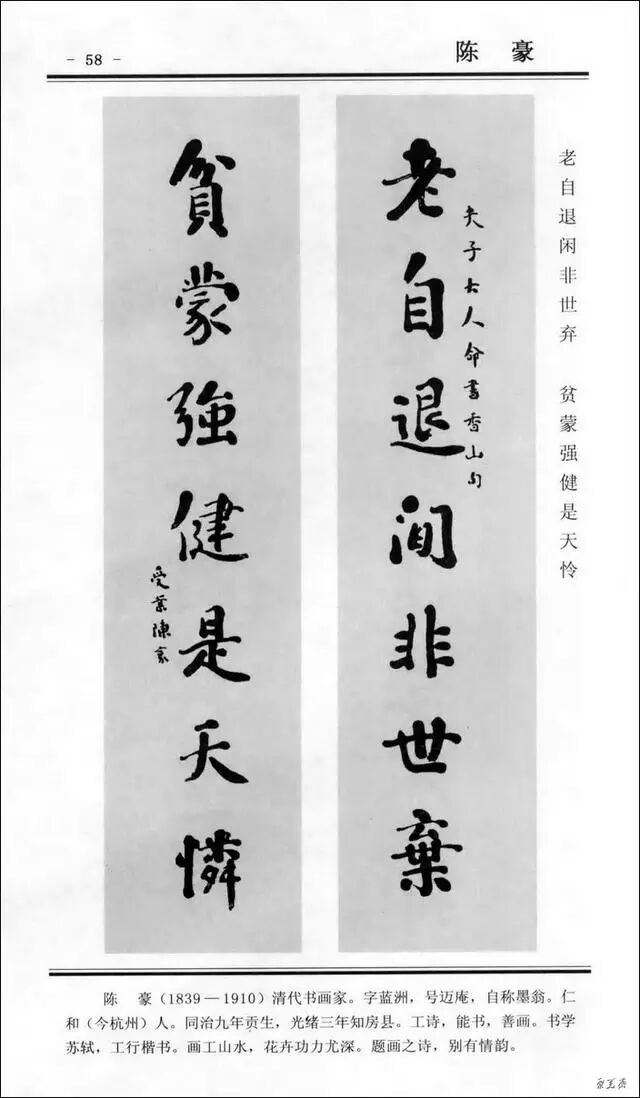 - 58 -
陈 豪
老自退闲非世弃 贫蒙强健是天怜
老自退閒非世棄
夫子大人命書香山句
貧蒙強健是天憐
受業陳豪
陈 豪(1839—1910)清代书画家。字蓝洲,号迈庵,自称墨翁。仁
和(今杭州)人。同治九年贡生,光绪三年知房县。工诗,能书,善画。书学
苏轼,工行楷书。画工山水,花卉功力尤深。题画之诗,别有情韵。